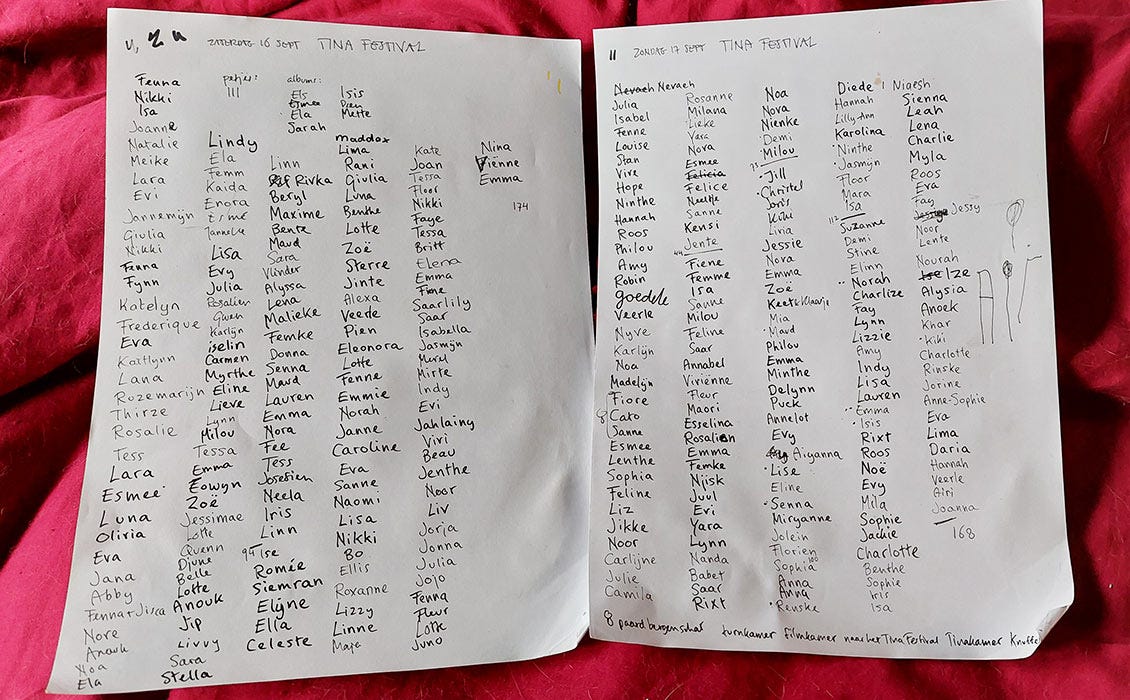 ZATERDAG 16 SEPT TINA FESTIVAL
Fenna
Nikki
Isa
Joanne
Natalie
Meike
Lara
Evi
Jannemijn
Giulia
Nikki
Fenna
Fynn
Katelyn
Frederique
Eva
Kaitlynn
Lana
Rozemarijn
Thirze
Rosalie
Tess
Lara
Esmee
Luna
Olivia
Eva
Jana
Abby
Fenna + Jissa
Nore
Anouk
Noa
Ela
petjes:
III
Lindy
Ela
Femm
Kaida
Enora
Esmé
Janneke
Lisa
Evy
Julia
Rosalien
Gwen
Karlijn
iselin
Carmen
Myrthe
Eline
Lieve
Lynn
Milou
Tessa
Emma
Eowyn
Zoë
Jessimae
Lotte
Quenn
Djune
Belle
Lotte
Anouk
Jip
Livvy
Sara
Stella
albums:
Els
Esmee
Ela
Sarah
Linn
Rivka
Beryl
Maxime
Bente
Maud
Sara
Vlinder
Alyssa
Lena
Malieke
Femke
Donna
Senna
Maud
Lauren
Emma
Nora
Fee
Tess
Josefien
Neela
Iris
Linn
99 Ise
Romée
Siemran
Elyne
Ella
Celeste
Isis
Pien
Mette
maddox
Lima
Rani
Giulia
Luna
Benthe
Lotte
Zoë
Sterre
Jinte
Alexa
Veerle
Pien
Eleonora
Lotte
Fenne
Emmie
Norah
Janne
Caroline
Eva
Sanne
Naomi
Lisa
Nikki
Bo
Ellis
Roxanne
Lizzy
Linne
Maja
Kate
Joan
Tessa
Floor
Nikki
Faye
Tessa
Britt
Elena
Emma
Fiene
Saarlily
Saar
Isabella
Jasmijn
Merel
Mirte
Indy
Evi
Jahlainy
Vivi
Beau
Jenthe
Noor
Liv
Jorja
Jonna
Julia
Jojo
Fenna
Fleur
Lotte
Juno
Nina
Viënne
Emma
174
ZONDAG 17 SEPT TINA FESTIVAL
Nevaeh Nevaeh
Julia
Isabel
Fenne
Louise
Stan
Vive
Hope
Ninthe
Hannah
Roos
Philou
Amy
Robin
goedele
Veerle
Nyve
Karlijn
Noa
Madelijn
Fiore
8 Cato
Sanne
Esmee
Lenthe
Sophia
Feline
Liz
Jikke
Noor
Carlijne
Julie
Camila
Rosanne
Milana
Lieke
Vera
Nova
Esmee
Felicia
Felice
Neeltje
Sanne
Kensi
Jente
44 Fiene
Femme
Isa
Sanne
Milou
Feline
Saar
Annabel
Viviënne
Fleur
Maori
Esselina
Rosalien
Emma
Femke
Njisk
Juul
Evi
Yara
Lynn
Nanda
Babet
Saar
Rixt
Noa
Nova
Nienke
Demi
Milou
Jill
Christel
Joris
Kiki
Livia
Jessie
Nova
Emma
Zoë
Keet & Klaasje
Mia
Maud
Philou
Emma
Minthe
Delynn
Puck
Annelot
Evy
Aiyanna
Lise
Eline
Senna
Miryanne
Jolein
Florien
Sophia 100
Anna
Anna
Renske
Diede
Hannah
Lilly Ann
Karolina
Ninthe
Jasmijn
Floor
Mara
Isa
112 Suzanne
Demi
Stine
Elinn
Norah
Charlize
Fay
Lynn
Lizzie
Amy
Indy
Lisa
Lauren
Emma
Isis
Rixt
Roos
Noë
Evy
Mila
Sophie
Jackie
Charlotte
Benthe
Sophie
Iris
Isa
Niqesh
Sienna
Leah
Lena
Charlie
Myla
Roos
Eva
Fay
Jessy
Noor
Lente
Nourah
Ize
Alysia
Anoek
Khar
Kiki
Charlotte
Rinske
Jorine
Anne-Sophie
Eva
Lima
Daria
Hannah
Veerle
Airi
Joanna
168
8 paard bergenschar turnkamer filmkamer naar het Tina Festival Tinakamer Knuffel